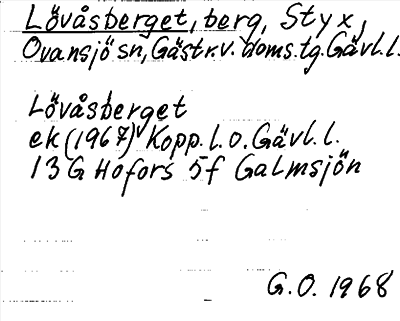 Lövåsberget, berg, Styx,
Ovansjö sn, Gästr.v. doms.tg. Gävl.l.
Lövåsberget
ek (1967) Kopp.l.o. Gävl.l.
13 G Hofors 5f Galmsjön
G.O. 1968